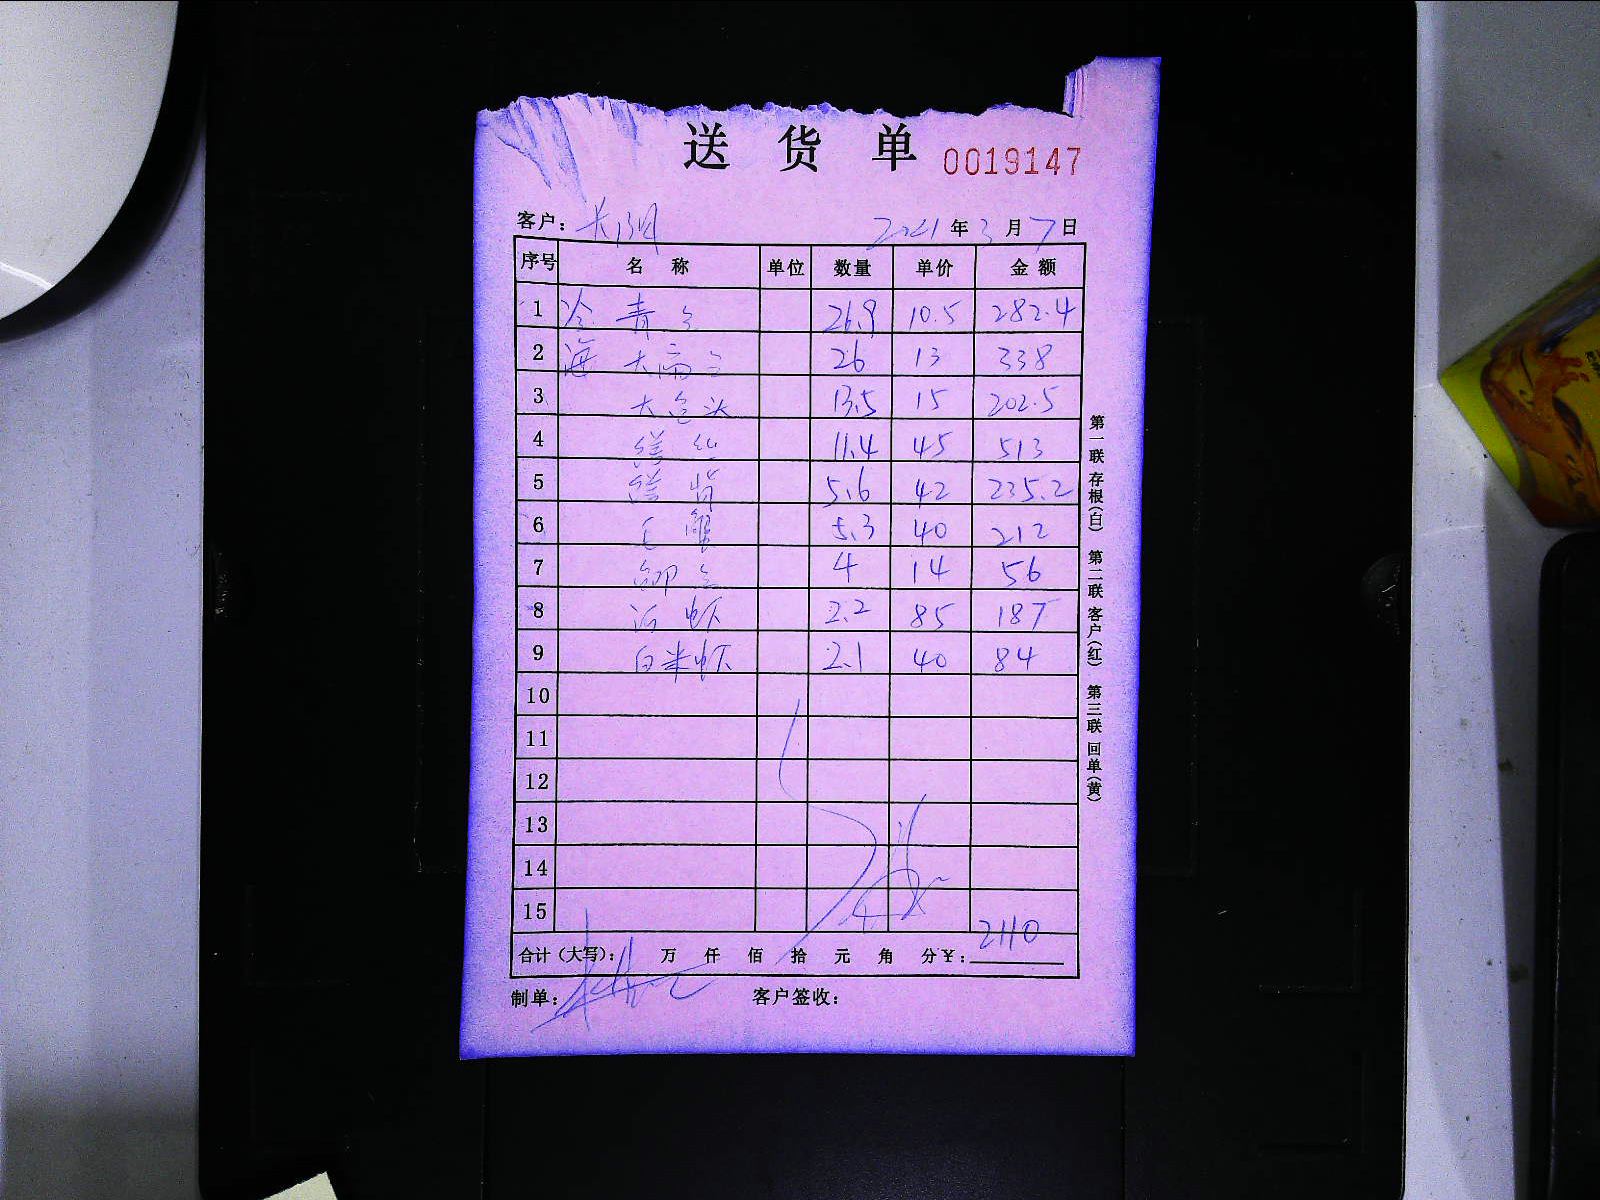 送货单 0019147
客户： 2021年3月7日
序号 名称 单位 数量 单价 金额
1 冷 青 26.9 10.5 282.4
2 海 大 26 13 338
3 大 头 13.5 15 202.5
4 鳝丝 11.4 45 513
5 鳝背 5.6 42 235.2
6 毛蟹 5.3 40 212
7 4 14 56
8 河虾 2.2 85 187
9 白米虾 2.1 40 84
10
11
12
13
14
15
合计（大写）： 万 仟 佰 拾 元 角 分 ￥：2110
制单： 客户签收：
第一联 存根（白） 第二联 客户（红） 第三联 回单（黄）